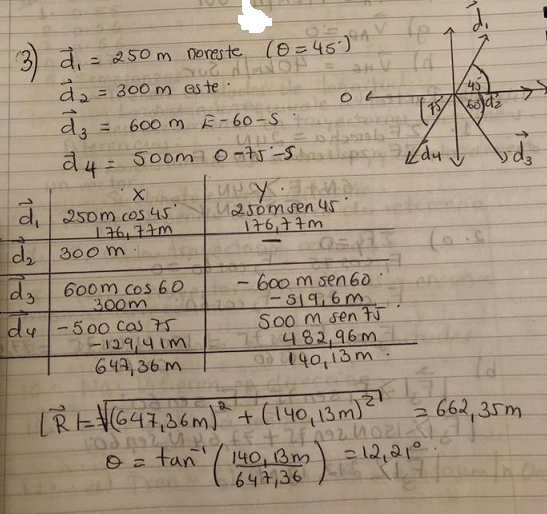 3) d⃗₁ = 250 m noreste (θ = 45°)
d⃗₂ = 300 m este.
d⃗₃ = 600 m E-60-S.
d⃗₄ = 500m O-75°-S
d⃗₁
45°
O
75°
60°
d⃗₂
d⃗₄
d⃗₃
x y.
d⃗₁ 250m cos 45° 250m sen 45°
176,77m 176,77m
d⃗₂ 300 m. —
d⃗₃ 600m cos 60 - 600 m sen 60°
300m - 519,6m.
d⃗₄ -500 cos 75 500 m sen 75°
-129,41m 482,96m
647,36m 140,13m.
|R⃗| = √(647,36m)² + (140,13m)² = 662,35m
θ = tan⁻¹ (140,13m / 647,36) = 12,21°.